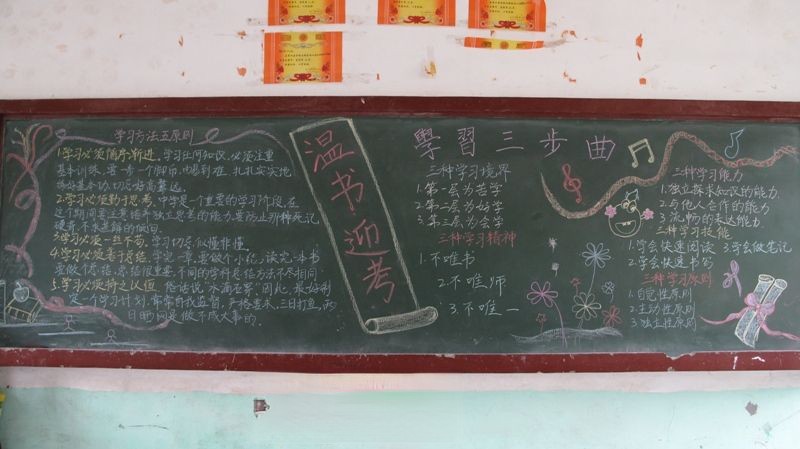 学习方法五原则
1.学习必须循序渐进。学习任何知识，必须注重
基本训练，要一步一个脚印，由易到难，扎扎实实地
练好基本功，切忌好高骛远。
2.学习必须勤于思考。中学是一个重要的学习阶段，在
这个期间要注意培养独立思考的能力，要防止那种死记
硬背，不求甚解的倾向。
3.学习必须一丝不苟。学习切忌似懂非懂。
4.学习必须善于总结。学完一章，要做个小结，读完一本书
要做个总结，总结很重要，不同的学科总结方法不尽相同
5.学习必须持之以恒。俗话说“水滴石穿”，因此，最好制
定一个学习计划，常常自我监督，严格要求，三日打鱼，两
日晒网是做不成大事的。
温书迎考
學習三步曲
三种学习境界
1.第一层为苦学
2.第二层为好学
3.第三层为会学
三种学习精神
1.不唯书
2.不唯师
3.不唯一
三种学习能力
1.独立探求知识的能力
2.与他人合作的能力
3.流畅的表达能力
三种学习技能
1.学会快速阅读 3学会做笔记
2.学会快速书写
三种学习原则
1.自觉性原则
2.主动性原则
3.独立性原则